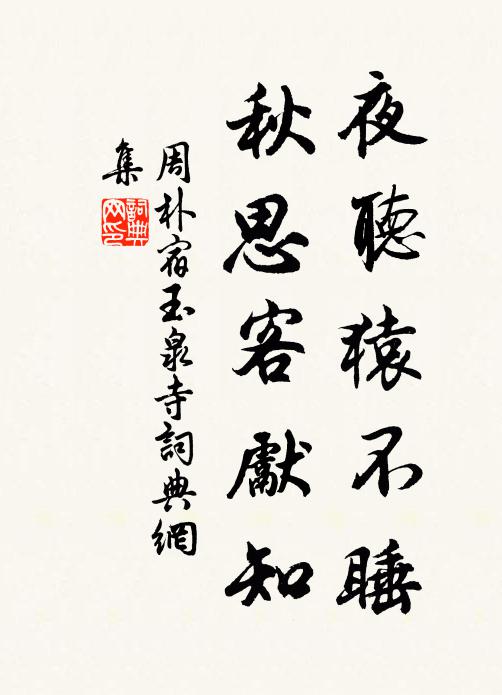 夜聽猿不睡
秋思客獻知
周朴宿玉泉寺詞典網
集
詞典
网印